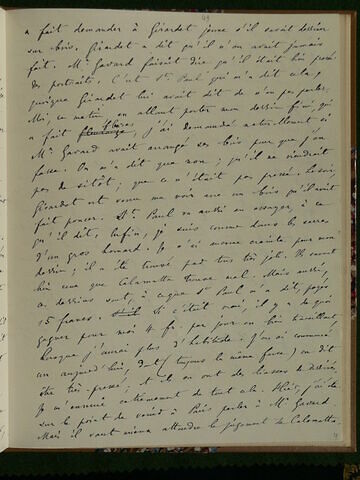 49
a fait demander à Girardet jeune s'il savait dessiner
sur bois. Girardet a dit qu'il n'en avait jamais
fait. Mr Gavard faisait dire qu'il était bien pressé
des portraits. C'est St Paul qui m'a dit cela,
quoique Girardet lui avait dit de n'en pas parler.
Moi, ce matin, en allant porter mon dessin fini, qui
a fait j'ai demandé naturellement si
Mr Gavard avait arrangé ses bois pour que j'en
fasse. On m'a dit que non ; qu'il ne viendrait
pas de sitôt ; que ce n'était pas pressé. Le soir,
Girardet est venu me voir avec un bois qu'il avait
fait poncer. St Paul va aussi en essayer, à ce
qu'il dit. Enfin, je suis comme dans les serres
d'un gros homard. Je n'ai moins crainte pour mon
dessin ; il a été trouvé pas très joli. Ils savent
bien ceux que Calamatta trouve mal. Mais aussi,
ces dessins sont, à ce que St Paul m'a dit, payés
15 francs. Si c'était moi, il y a de quoi
gagner pour moi 4 fr. par jour en bien travaillant
lorsque j'aurai plus d'habitude. J'en ai commencé
un aujourd'hui, dont (toujours la même farce) on dit
être très-pressé ; et ils en ont des liasses de
Je m'ennuie extrêmement de tout cela. Hier, j'ai été
sur le point de venir à Paris parler à Mr Gavard.
Mais il vaut mieux attendre le jugement de Calamatta.